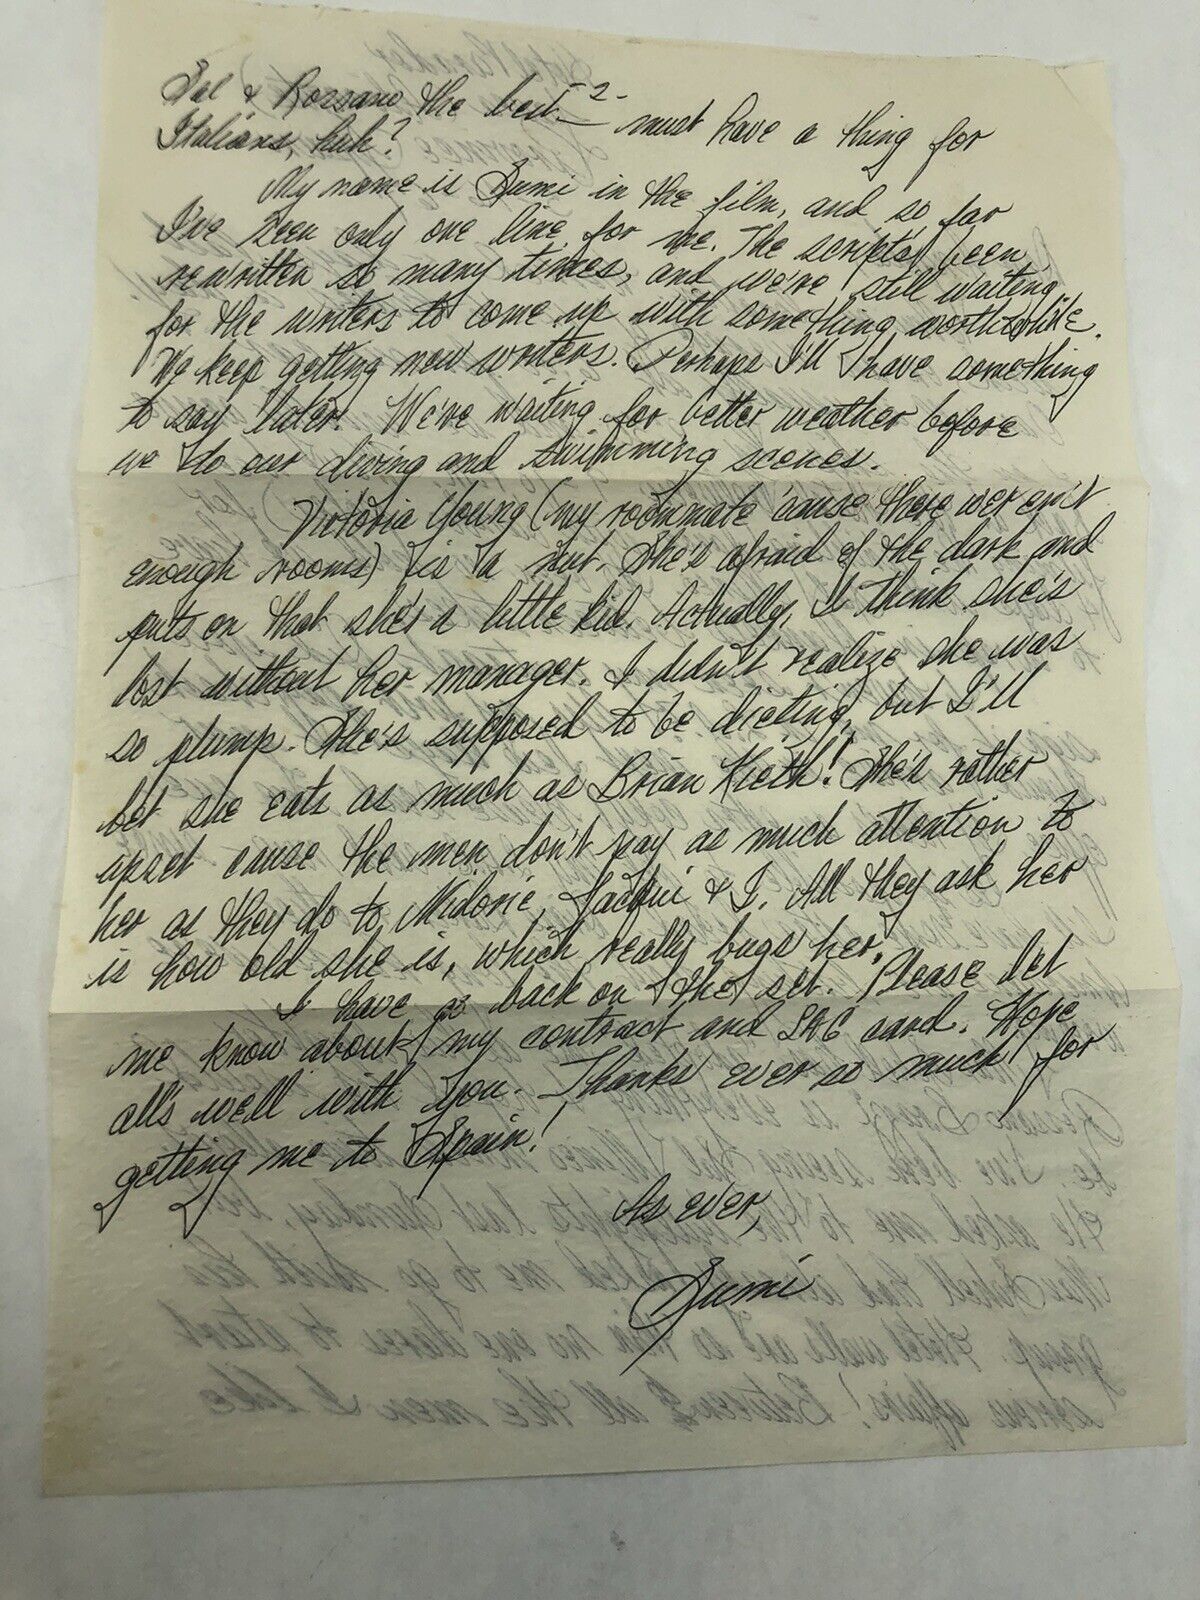 -2-
Sal & Rossano the best - must have a thing for
Italians, huh?
My name is Sumi in the film, and so far
I've seen only one line for me. The script's been
rewritten so many times, and we're still waiting
for the writers to come up with something worthwhile.
We keep getting new writers. Perhaps I'll have something
to say later. We're waiting for better weather before
we do our diving and swimming scenes.
Victoria Young (my roommate 'cause there weren't
enough rooms) is a nut. She's afraid of the dark and
puts on that she's a little kid. Actually, I think she's
lost without her manager. I didn't realize she was
so plump. She's supposed to be dieting, but I'll
bet she eats as much as Brian Kieth! She's rather
upset cause the men don't pay as much attention to
her as they do to Midorie, Jacqui & I. All they ask her
is how old she is, which really bugs her.
I have to back on the set. Please let
me know about my contract and SAG card. Hope
all's well with you. Thanks ever so much for
getting me to Spain!
As ever,
Sumi